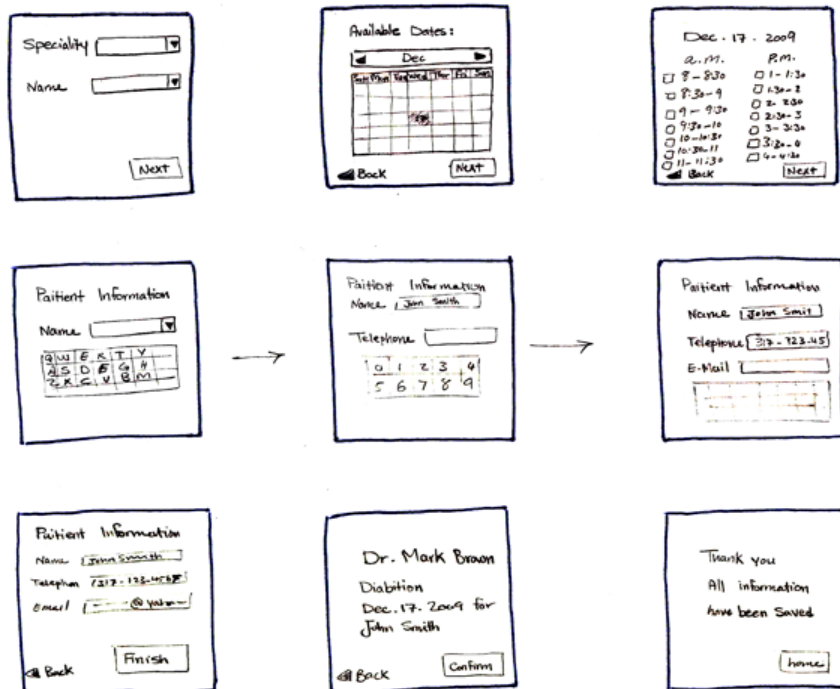 Speciality
Name
Next
Available Dates:
Dec
Sat Mon Tue Wed Thur Fri Sun
Back
Next
Dec. 17. 2009
a.m. P.m.
8 - 8:30 1 - 1:30
8:30 - 9 1:30 - 2
9 - 9:30 2 - 2:30
9:30 - 10 2:30 - 3
10 - 10:30 3 - 3:30
10:30 - 11 3:30 - 4
11 - 11:30 4 - 4:30
Back
Next
Paitient Information
Name
Q W E R T Y
A S D F G H
Z X C V B M
Paitient Information
Name John Smith
Telephone
0 1 2 3 4
5 6 7 8 9
Paitient Information
Name John Smit
Telephone 317 - 123-45
E-Mail
Paitient Information
Name John Smith
Telephon 317 - 123-4567
Email @ yahoo
Back
Finish
Dr. Mark Brown
Diabition
Dec. 17. 2009 for
John Smith
Back
Confirm
Thank you
All information
have been Saved
home